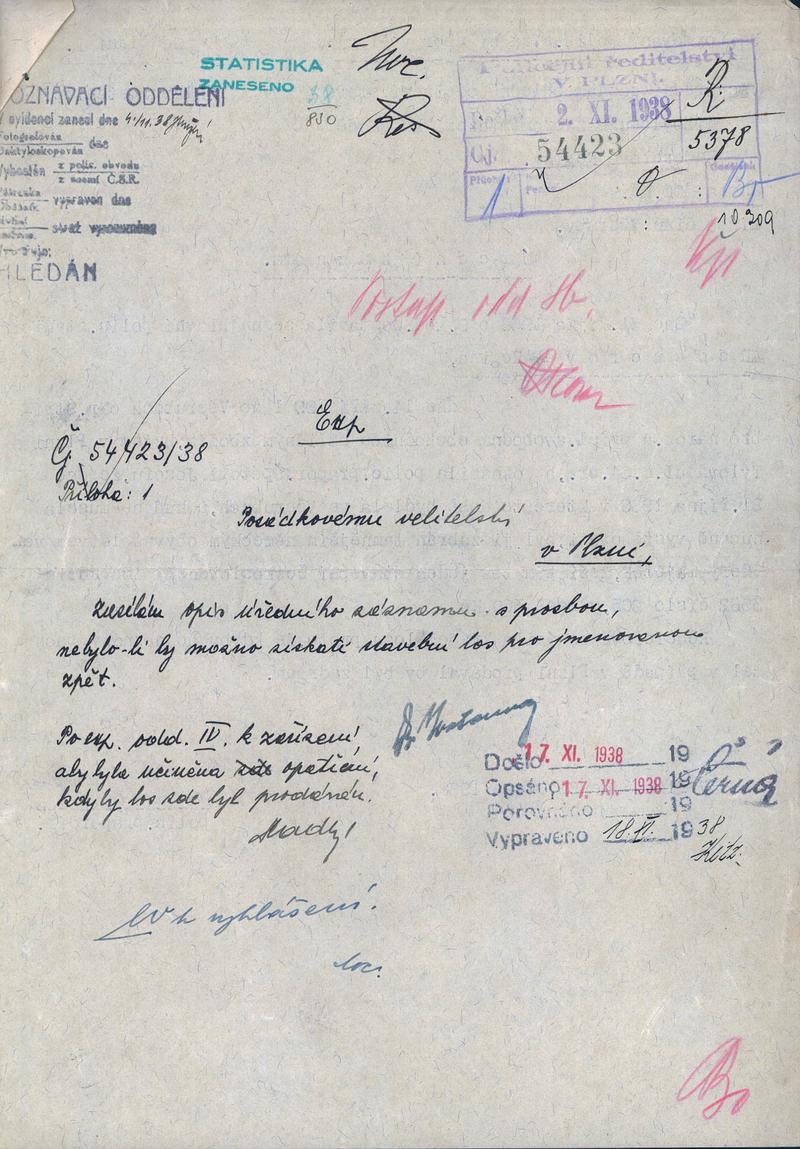 STATISTIKA
ZANESENO
38
850
OZNÁVACÍ ODDĚLENÍ
V evidenci zanesl dne
Fotografován
Daktyloskopován dne
Vyhoštěn z polic. obvodu
z území Č.S.R.
vypraven dne
stráž
HLEDÁN
Policejní ředitelství
V PLZNI.
2. XI. 1938
Čj. 54423
1
R
5378
10.309
Postup odd. 
Exp
Čj. 54423/38
Příloha: 1
Posádkovému velitelství
v Plzni,
Zasílám opis úředního záznamu s prosbou,
nebylo-li by možno získati stavební los pro jmenovanou
zpět.
Po exp. odd. IV. k zařízení
aby byla učiněna zde opatření,
kdyby los zde byl prodáván.
Došlo 17. XI. 1938 19
Opsáno 17. XI. 1938 19 Černá
Porovnáno 19
Vypraveno 18. XI. 1938
IV k vyhlášení.